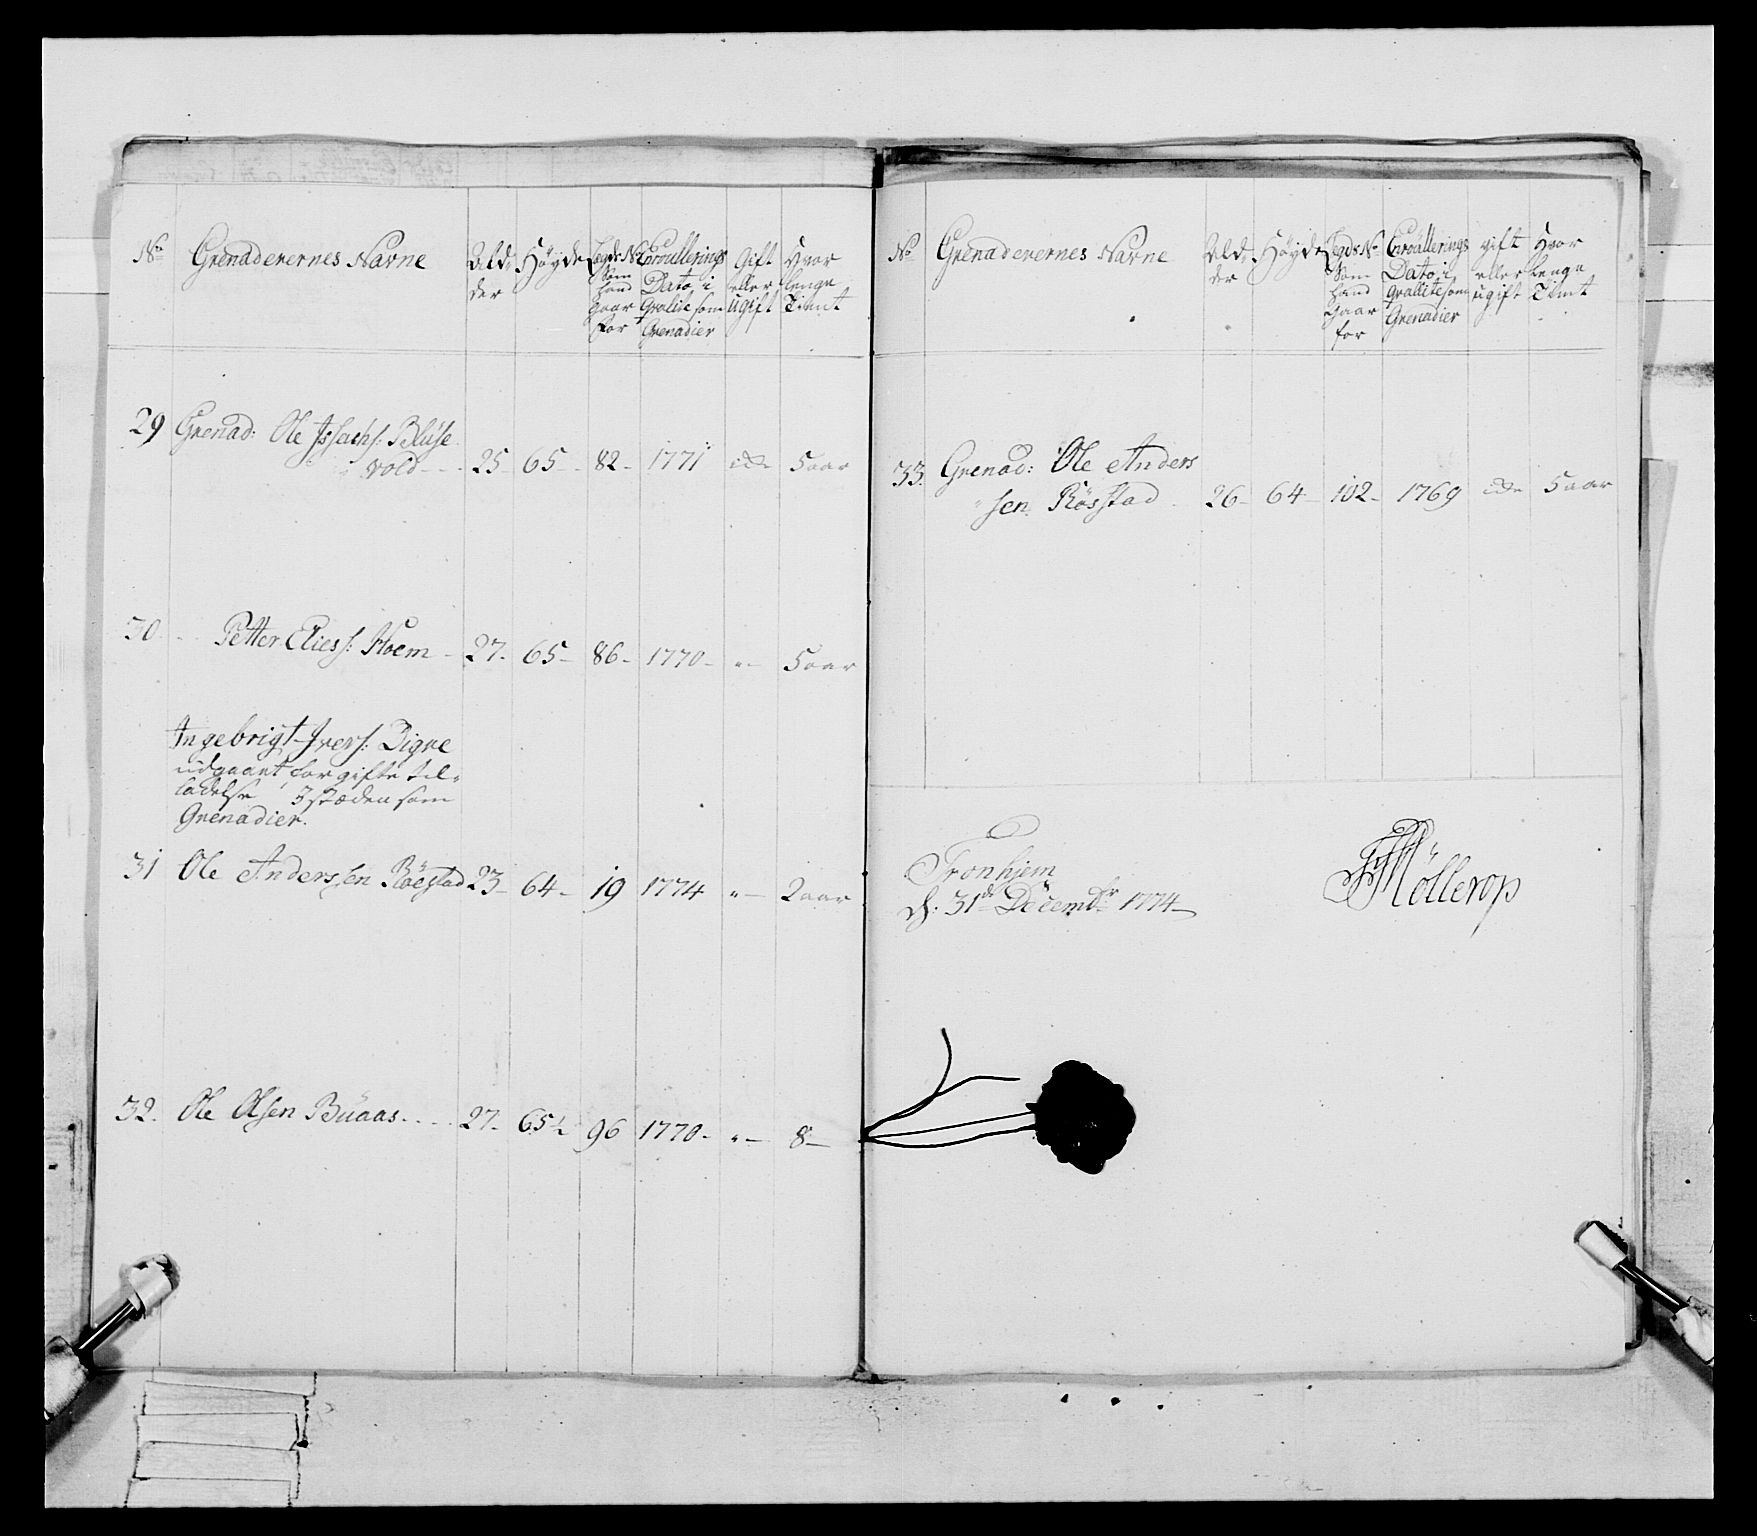 No
Grenaderernes Navne
Ald-
der
Høyde
Legds No
som
hand
gaar
for
Enroullerings
Dato i
qvalite som
Grenadier
Gift
eller
ugift
Hvor
lenge
Tient
29 Grenad: Ole Issachs: Bluse
vold - - - 25 - 65 - 82 - 1771 5 aar
30 - - Petter Elies: Hoem - 27 - 65 - 86 - 1770 - " - 5 aar
Ingebrigt Ivers: Digre
udgaaet for gifte til-
ladelse, I stæden som
Grenadier.
31 Ole Anderssen Röestad 23 - 64 - 19 1774 " - 2 aar
32. Ole Olsen Buaas - - - 27 - 65½ 96 1770 - " - 8 -
No
Grenaderernes Navne
Ald-
der
Høyde
Legds No
som
hand
gaar
for
Enroullerings
Dato i
qvalite som
Grenadier
gift
eller
ugift
Hvor
lenge
Tient
33. Grenad: Ole Anders
sen Rösstad - 26 - 64 - 102 - 1769 5 aar
Tronhjem
d: 31de Decembr 1774
Möllerop